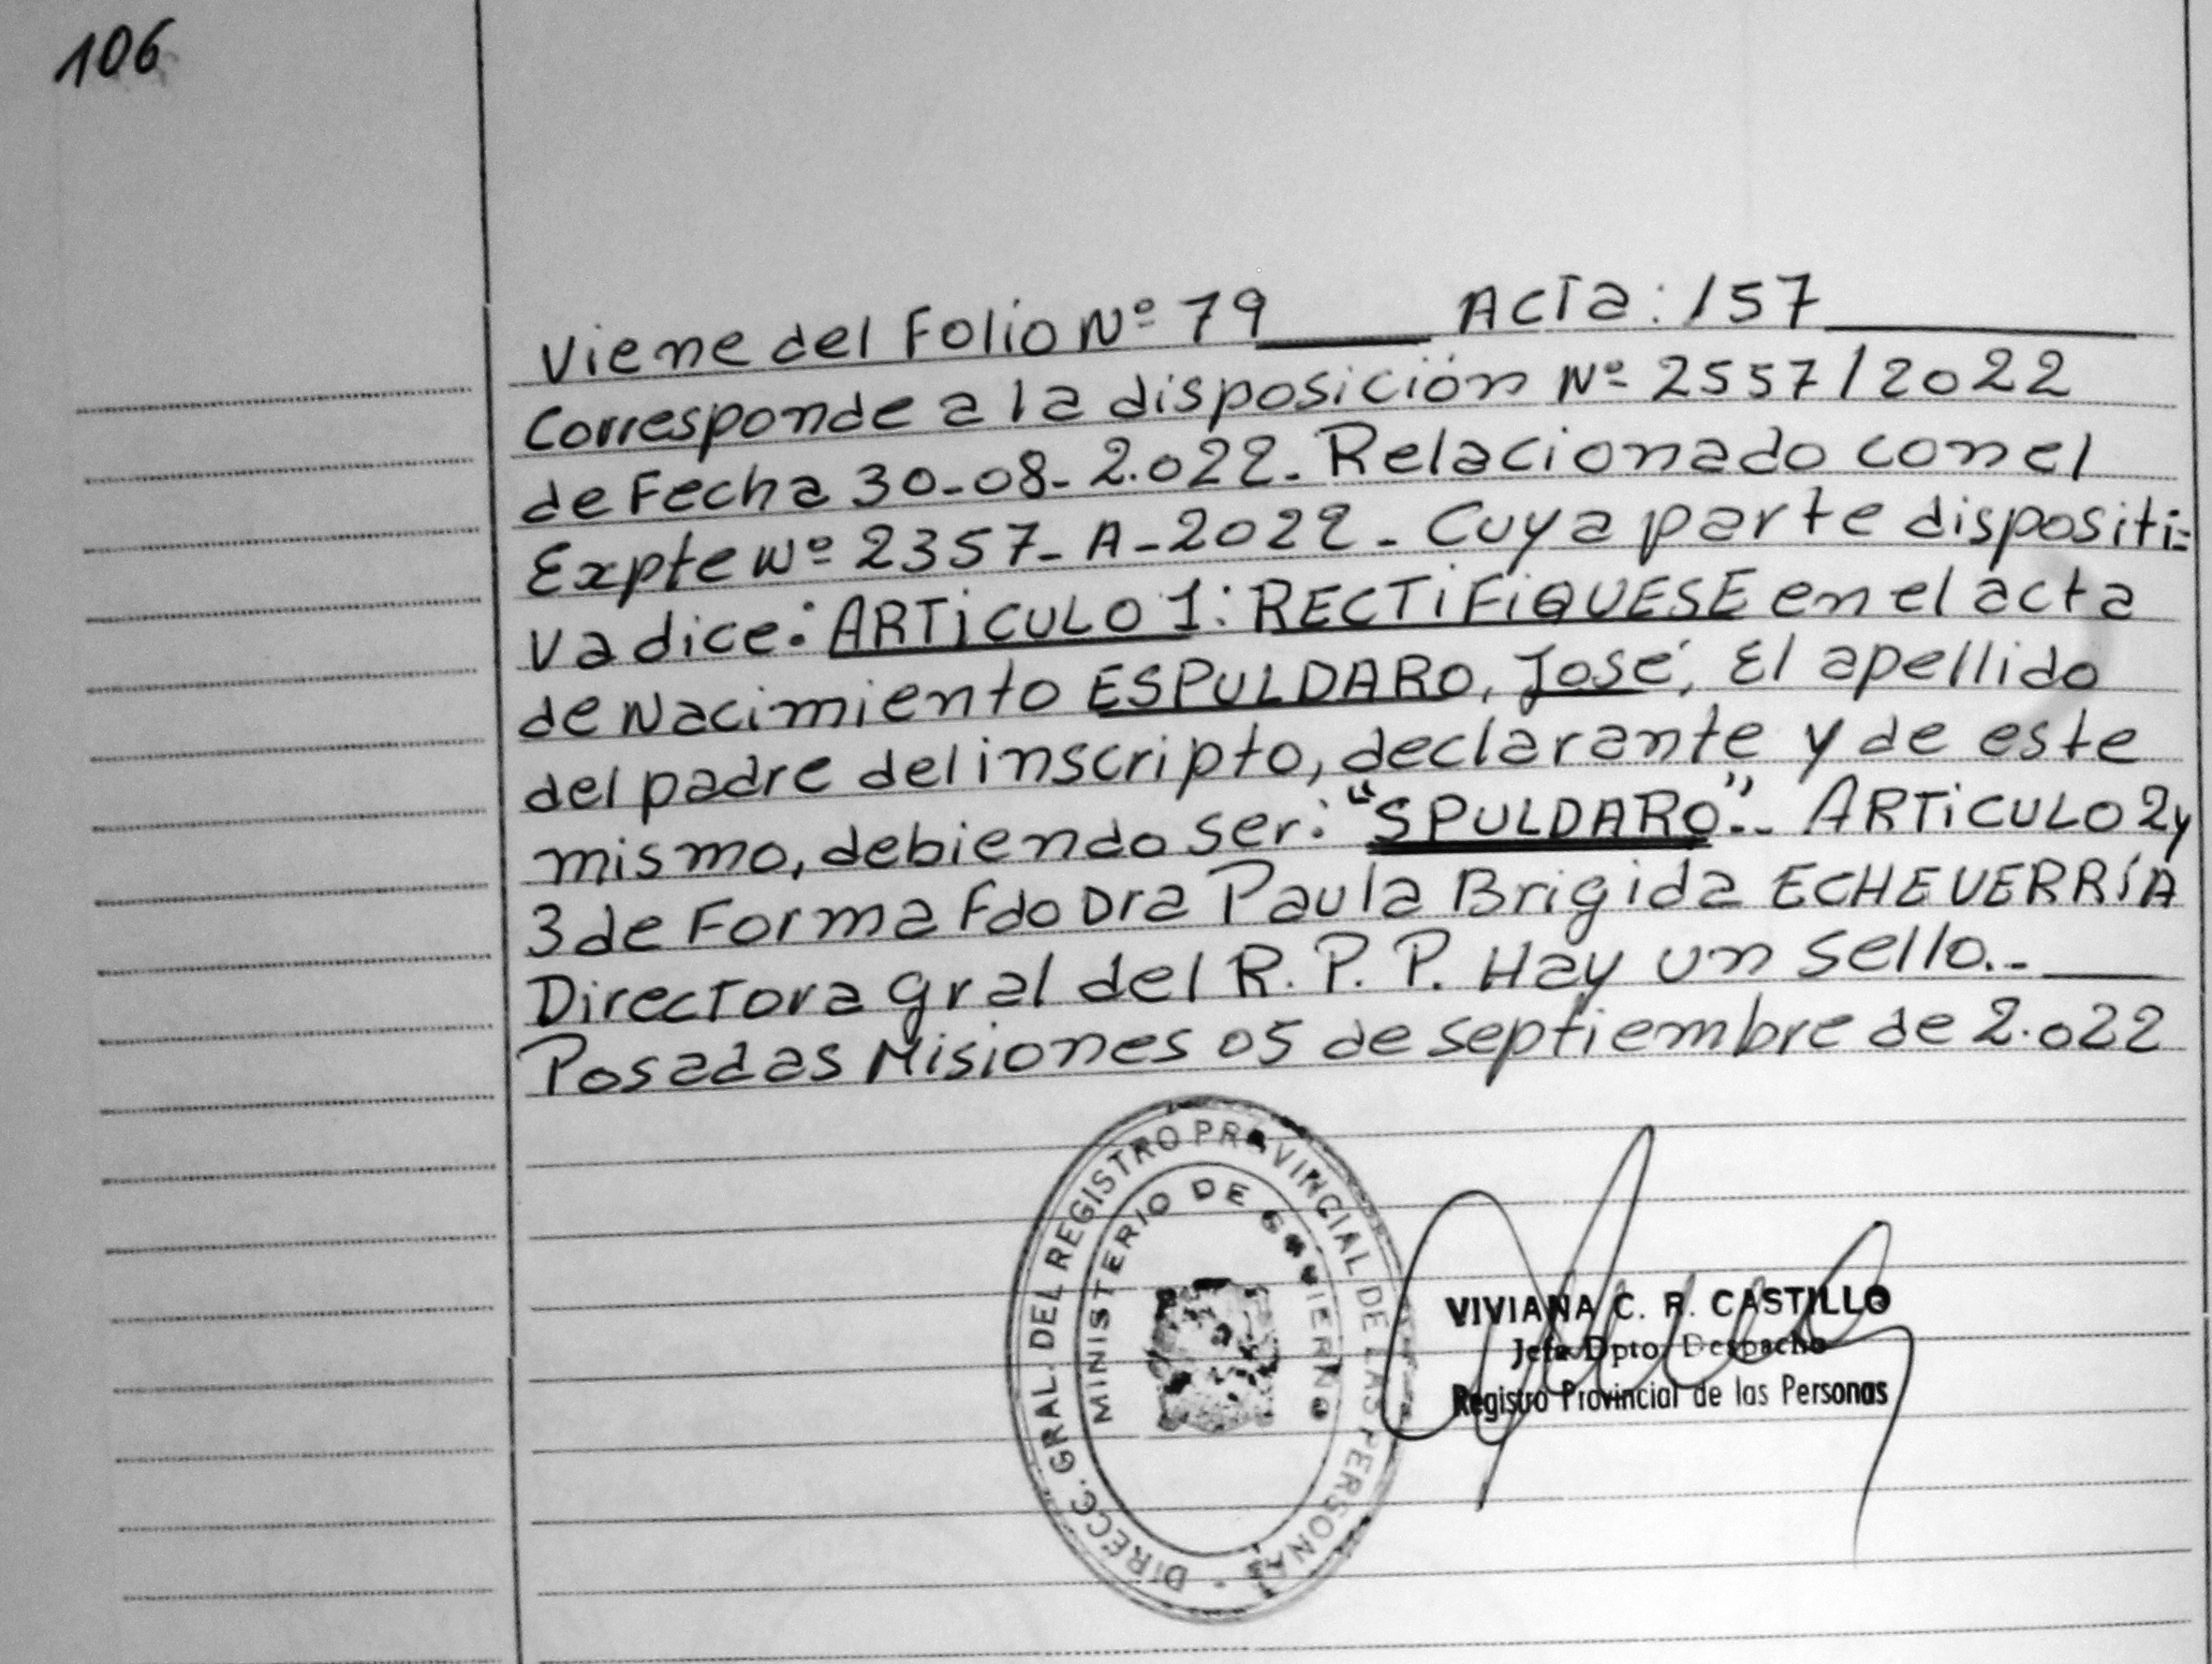 106
Viene del Folio Nº 79 ____ Acta: 157 ____
Corresponde a la disposición Nº 2557/2022
de Fecha 30-08-2.022. Relacionado con el
Expte Nº 2357-A-2022. Cuya parte dispositi=
va dice: ARTiCULO 1: RECTiFiQUESE en el acta
de Nacimiento ESPULDARO, José, El apellido
del padre del inscripto, declarante y de este
mismo, debiendo ser: "SPULDARO".. ARTiCULO 2 y
3 de Forma Fdo Dra Paula Brigida ECHEVERRÍA
Directora gral del R.P.P. Hay un sello.. ____
Posadas Misiones 05 de septiembre de 2.022
DIRECC. GRAL. DEL REGISTRO PROVINCIAL DE LAS PERSONAS -
MINISTERIO DE GOBIERNO
VIVIANA C. R. CASTILLO
Jefa Dpto. Despacho
Registro Provincial de las Personas